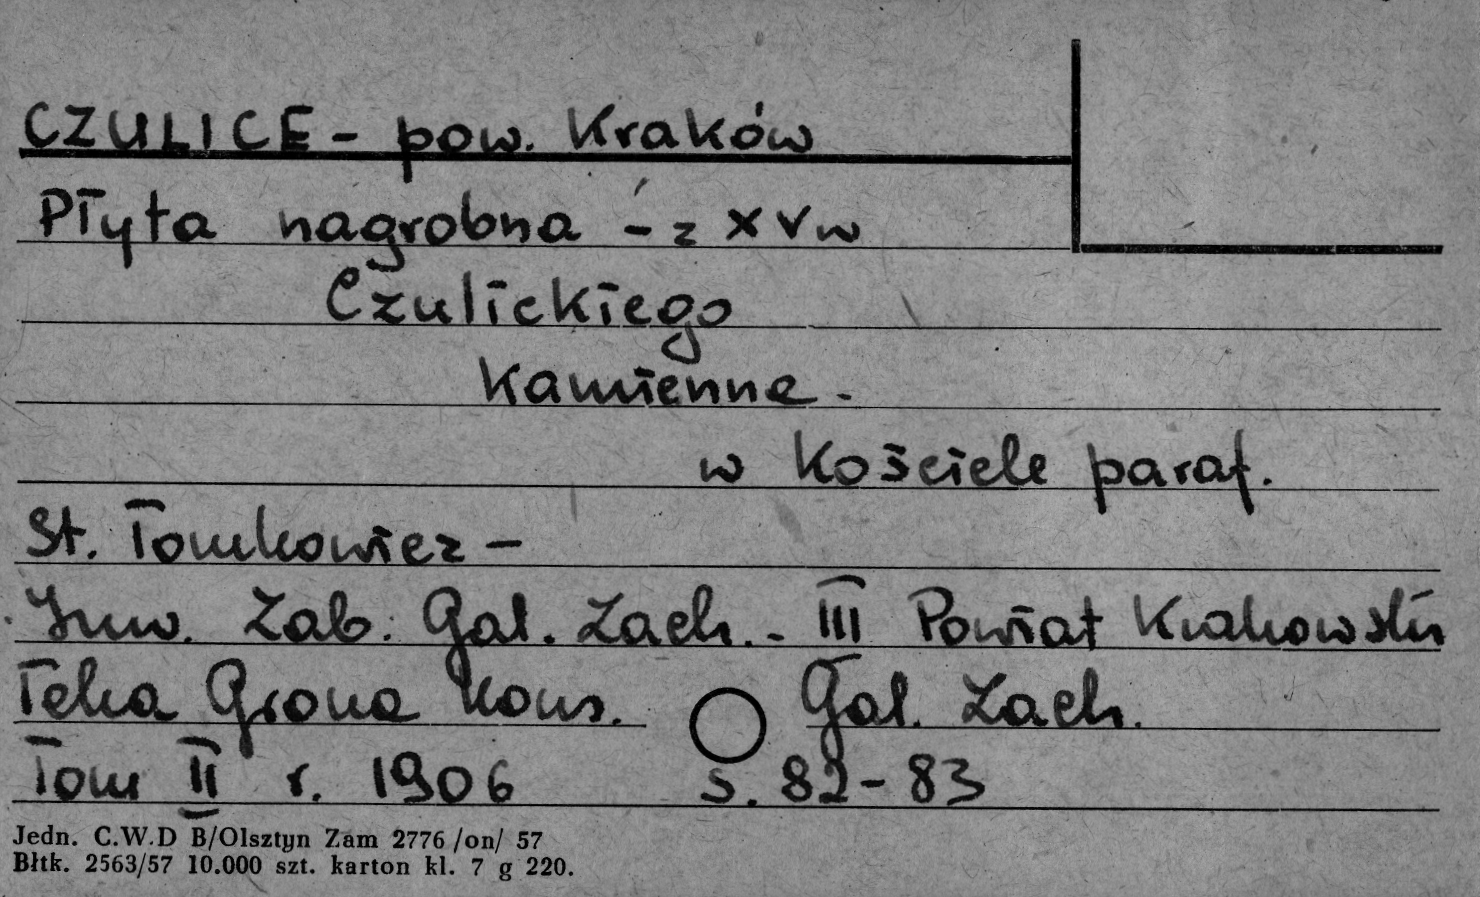 CZULICE - pow. Kraków
Płyta nagrobna - z XV w
Czulickiego
Kamienna -
w Kościele paraf.
St. Tomkowicz -
Inw. Zab. Gal. Zach. - III Powiat Krakowski
Teka Grona Kons. Gal. Zach.
Tom II r. 1906 s. 82-83
Jedn. C.W.D B/Olsztyn Zam 2776 /on/ 57
Błtk. 2563/57 10.000 szt. karton kl. 7 g 220.